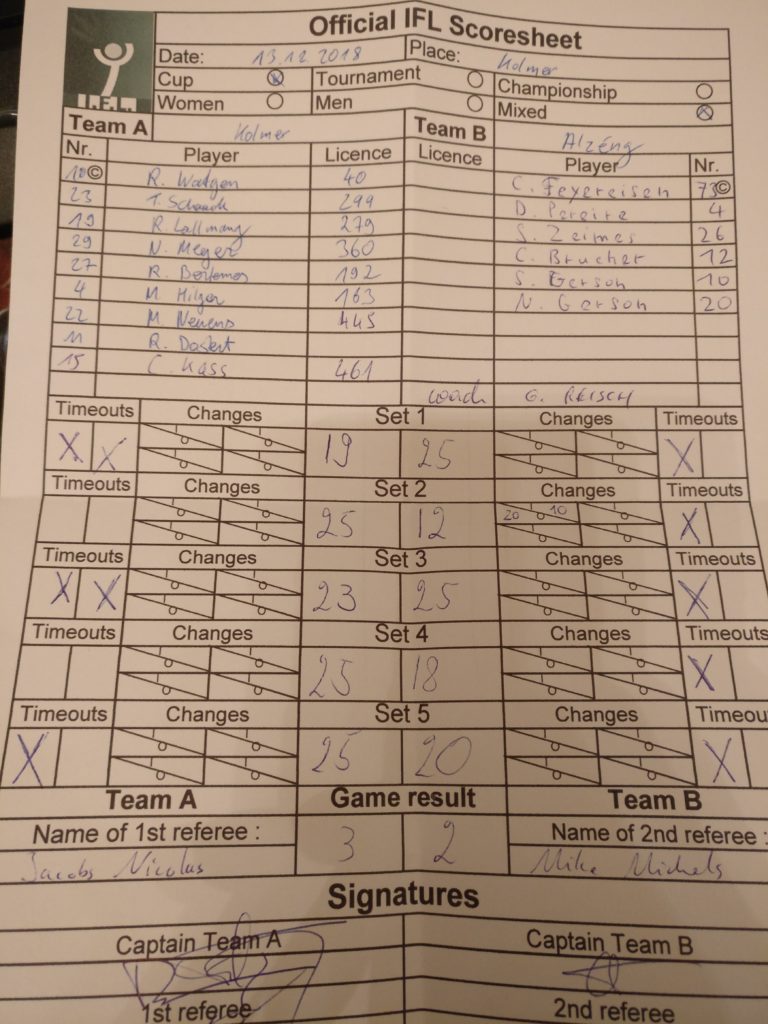 Official IFL Scoresheet
I.F.L.
Date: 13.12.2018 Place: Kolmer
Cup Tournament Championship
Women Men Mixed
Team A Kolmer Team B Alzéng
Nr. Player Licence Licence Player Nr.
10 © R. Watgen 40 C. Feyereisen 73 ©
23 T. Schaack 299 D. Pereira 4
19 R. Lallmang 279 S. Zeimes 26
29 N. Meyer 360 C. Brucher 12
27 R. Bertemes 192 S. Gerson 10
4 M. Hilger 163 N. Gerson 20
22 M. Neuens 445
11 R. Dostert
15 C. Kass 461
coach G. REISCH
Timeouts Changes Set 1 Changes Timeouts
X X 19 25 X
Timeouts Changes Set 2 Changes Timeouts
25 12 20 10 X
Timeouts Changes Set 3 Changes Timeouts
X X 23 25 X
Timeouts Changes Set 4 Changes Timeouts
25 18 X
Timeouts Changes Set 5 Changes Timeou
X 25 20 X
Team A Game result Team B
Name of 1st referee : 3 2 Name of 2nd referee :
Jacobs Nicolas Mike Michels
Signatures
Captain Team A Captain Team B
1st referee 2nd referee